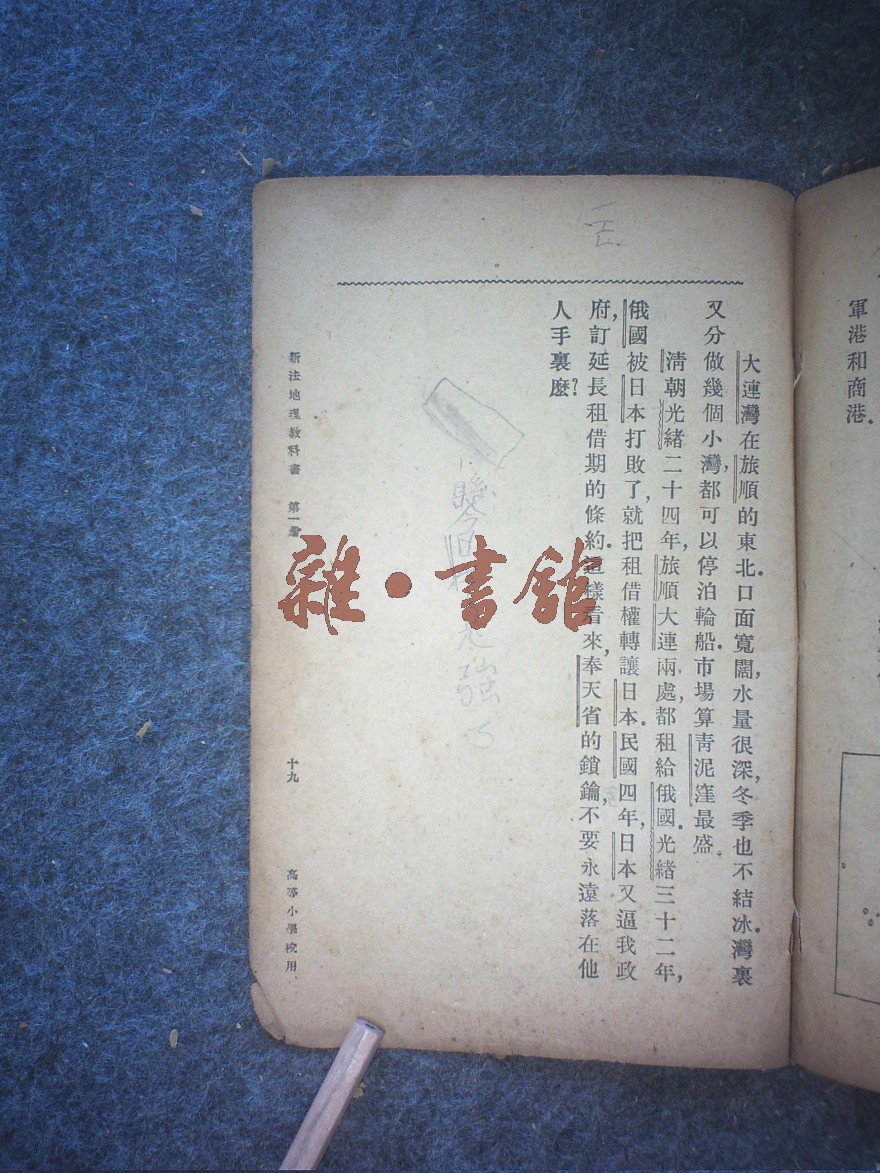 軍港和商港．
大連灣在旅順的東北．口面寬闊，水量很深，冬季也不結冰．灣裏
又分做幾個小灣，都可以停泊輪船．市場算靑泥窪最盛．
淸朝光緖二十四年，旅順大連兩處，都租給俄國．光緖三十二年，
俄國被日本打敗了，就把租借權轉讓日本．民國四年，日本又逼我政
府，訂延長租借期的條約．這樣看來，奉天省的鎖鑰，不要永遠落在他
人手裏麽？
新法地理教科書 第一册 十九 高等小學校用
雜·書館